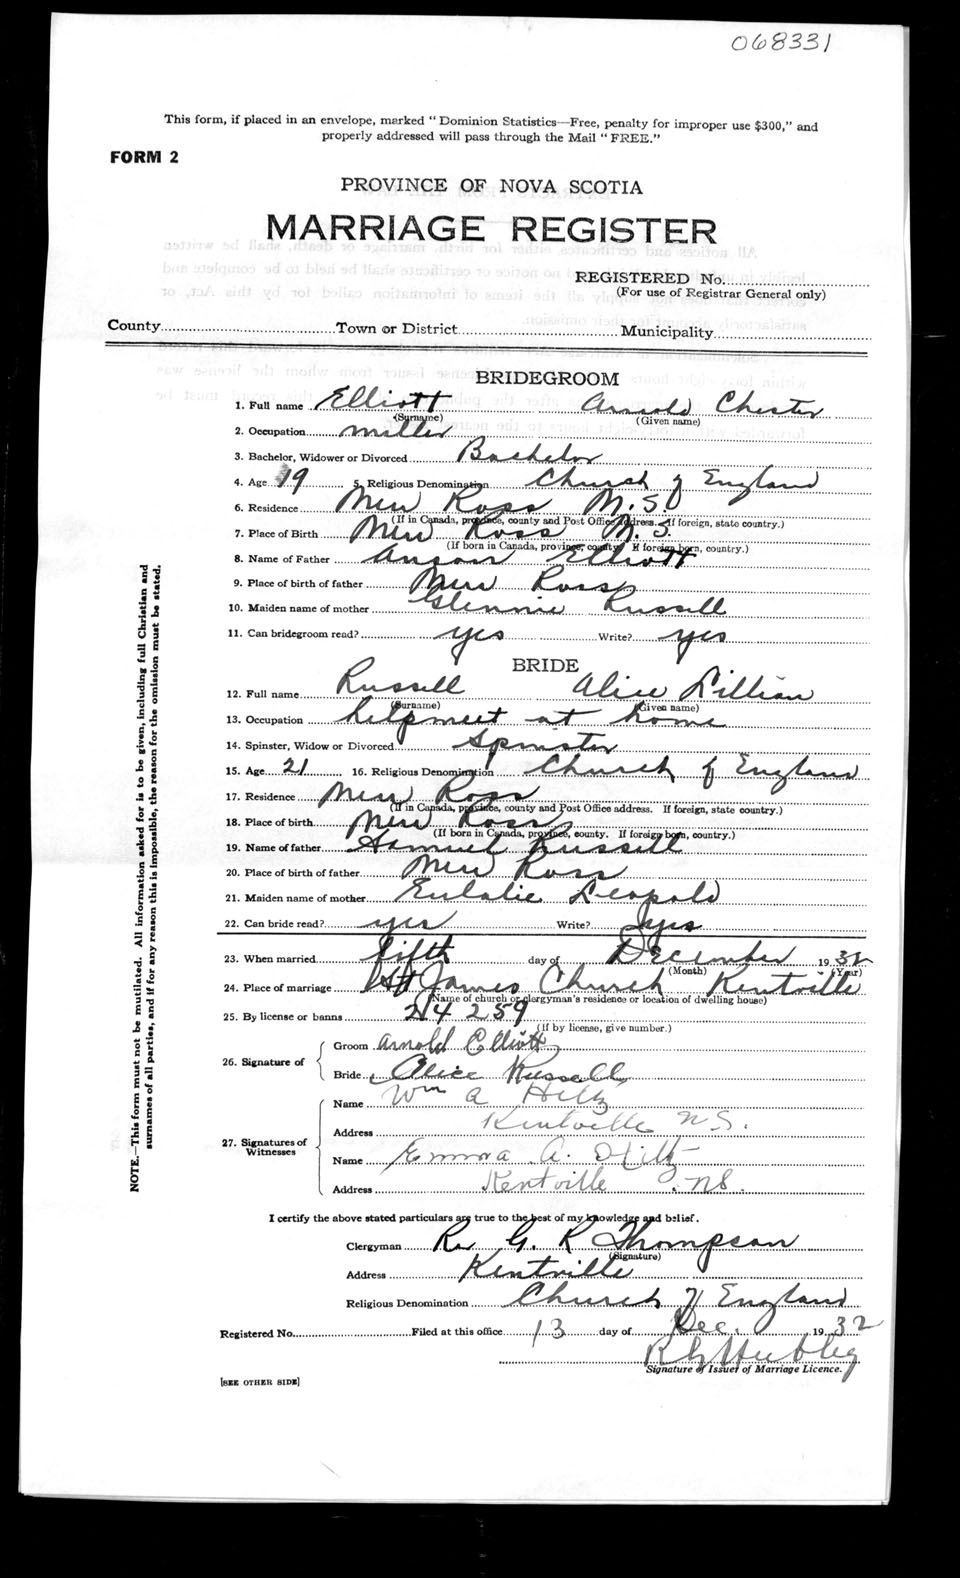 068331
This form, if placed in an envelope, marked "Dominion Statistics—Free, penalty for improper use $300," and
properly addressed will pass through the Mail "FREE."
FORM 2
PROVINCE OF NOVA SCOTIA
MARRIAGE REGISTER
REGISTERED No.
(For use of Registrar General only)
County Town or District Municipality
BRIDEGROOM
1. Full name Elliott Arnold Chester
(Surname) (Given name)
2. Occupation miller
3. Bachelor, Widower or Divorced Bachelor
4. Age 19 5. Religious Denomination Church of England
6. Residence New Ross N.S.
(If in Canada, province, county and Post Office address. If foreign, state country.)
7. Place of Birth New Ross N.S.
(If born in Canada, province, county. If foreign born, country.)
8. Name of Father Anson Elliott
9. Place of birth of father New Ross
10. Maiden name of mother Glennie Russell
11. Can bridegroom read? yes Write? yes
BRIDE
12. Full name Russell Alice Lillian
(Surname) (Given name)
13. Occupation helpmeet at home
14. Spinster, Widow or Divorced Spinster
15. Age 21 16. Religious Denomination Church of England
17. Residence New Ross
(If in Canada, province, county and Post Office address. If foreign, state country.)
18. Place of birth New Ross
(If born in Canada, province, county. If foreign born, country.)
19. Name of father Samuel Russell
20. Place of birth of father New Ross
21. Maiden name of mother Eulalie Leopold
22. Can bride read? yes Write? yes
23. When married fifth day of December 1932
(Month) (Year)
24. Place of marriage St James Church Kentville
(Name of church or clergyman's residence or location of dwelling house)
25. By license or banns 24259
(If by license, give number.)
26. Signature of
Groom Arnold Elliott
Bride Alice Russell
27. Signatures of Witnesses
Name Wm A Hiltz
Address Kentville N.S.
Name Emma A. Hiltz
Address Kentville NS.
I certify the above stated particulars are true to the best of my knowledge and belief.
Clergyman Rev G. R Thompson
(Signature)
Address Kentville
Religious Denomination Church of England
Registered No. Filed at this office 13 day of Dec. 1932
Signature of Issuer of Marriage Licence.
[SEE OTHER SIDE]
NOTE.—This form must not be mutilated. All information asked for is to be given, including full Christian and
surnames of all parties, and if for any reason this is impossible, the reason for the omission must be stated.